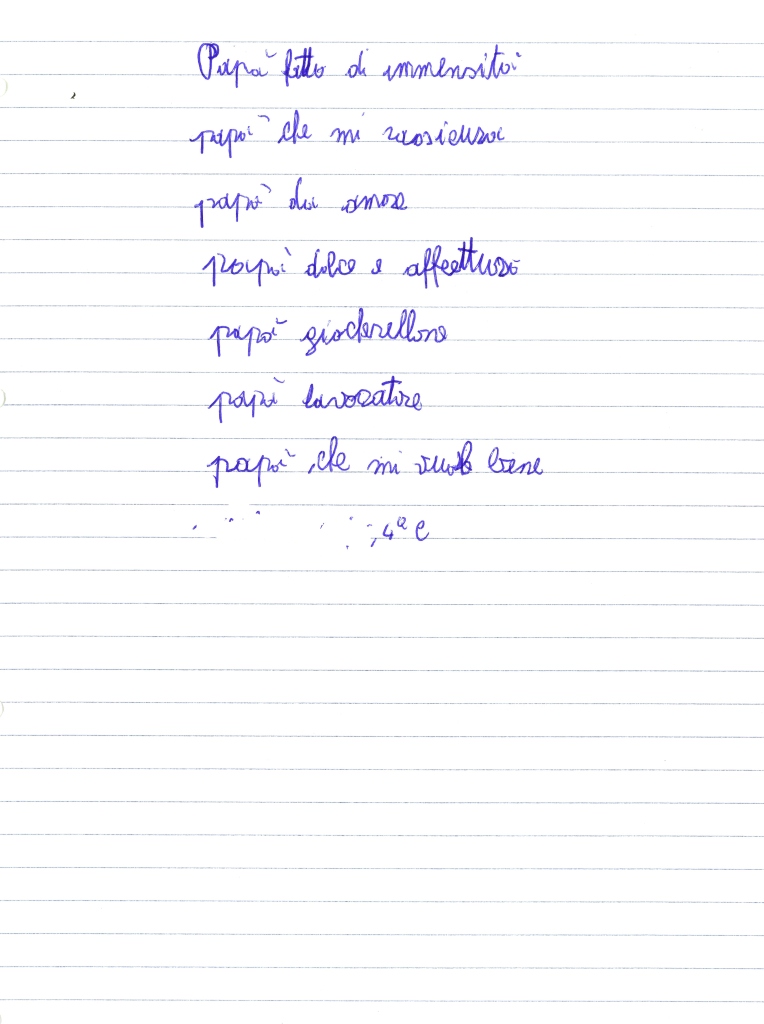 Papà fatto di immensità
papà che mi rassicura
papà da amare
papà dolce e affeettuoso
papà giocherellone
papà lavoratore
papà che mi vuole bene
4ª C